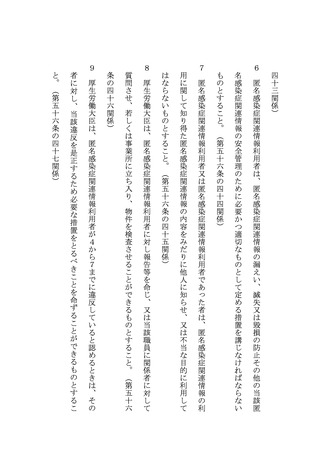 四十三関係)
6 匿名感染症関連情報利用者は、匿名感染症関連情報の漏えい、滅失又は毀損の防止その他の当該匿
名感染症関連情報の安全管理のために必要かつ適切なものとして定める措置を講じなければならない
ものとすること。(第五十六条の四十四関係)
7 匿名感染症関連情報利用者又は匿名感染症関連情報利用者であった者は、匿名感染症関連情報の利
用に関して知り得た匿名感染症関連情報の内容をみだりに他人に知らせ、又は不当な目的に利用して
はならないものとすること。(第五十六条の四十五関係)
8 厚生労働大臣は、匿名感染症関連情報利用者に対し報告等を命じ、又は当該職員に関係者に対して
質問させ、若しくは事業所に立ち入り、物件を検査させることができるものとすること。(第五十六
条の四十六関係)
9 厚生労働大臣は、匿名感染症関連情報利用者が4から7までに違反していると認めるときは、その
者に対し、当該違反を是正するため必要な措置をとるべきことを命ずることができるものとするこ
と。(第五十六条の四十七関係)